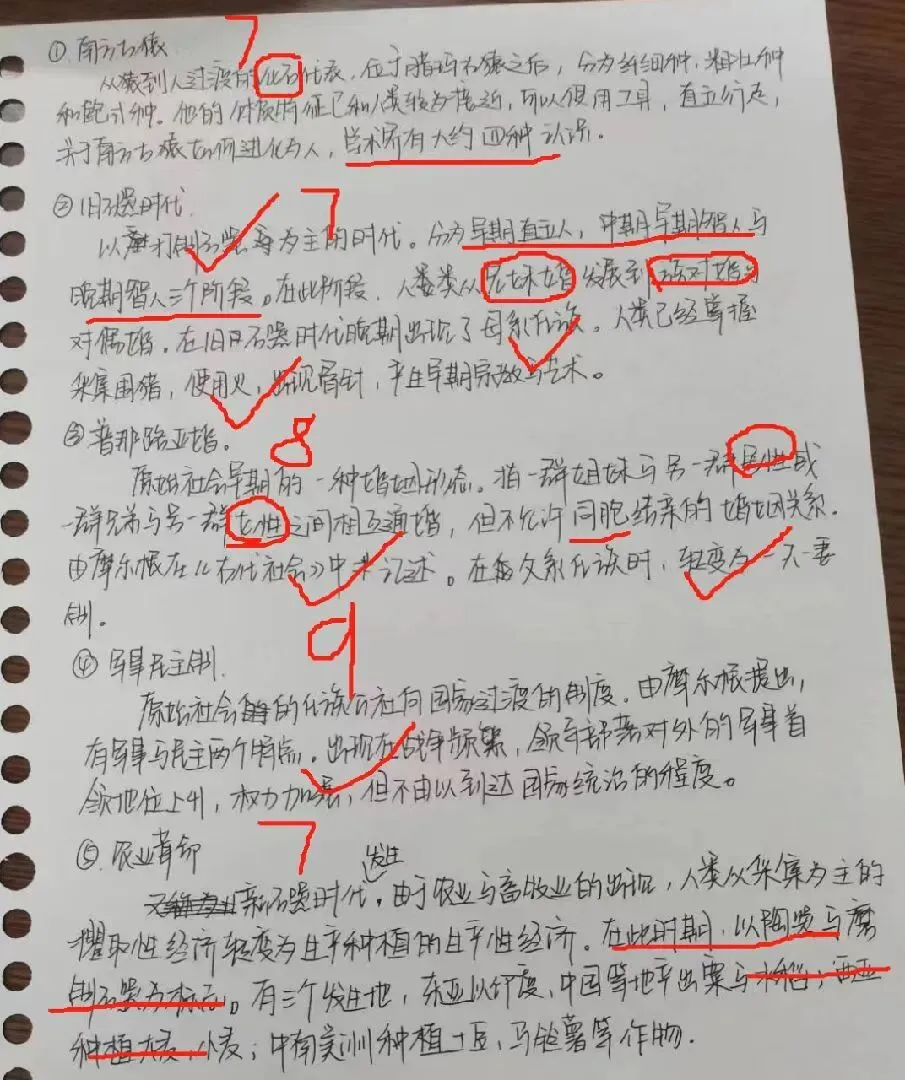 ① 南方古猿 7
从猿到人过渡的化石代表，位于腊玛古猿之后，分为纤细种，粗壮种
和鲍氏种。他的体质特征已和人类较为接近，可以使用工具，直立行走，
关于南方古猿如何进化为人，学术界有大约四种认识。
②旧石器时代. 7
以打制石器为主的时代。分为早期直立人，中期早期智人与
晚期智人三个阶段。在此阶段，人类从兄妹婚发展到
对偶婚。在旧石器时代晚期出现了母系氏族。人类已经掌握
采集围猪，使用火，出现骨针，产生早期宗教与艺术。
③普那路亚婚。 8
原始社会早期的一种婚姻形态。指一群姐妹与另一群男性或
一群兄弟与另一群女性之间相互通婚，但不允许同胞结亲的婚姻关系.
由摩尔根在《古代社会》中记述。在父系氏族时，转变为一夫一妻
制。
④ 军事民主制. 9
原始社会的氏族公社向国家过渡的制度. 由摩尔根提出，
有军事与民主两个特点。出现在战争频繁，领导部落对外的军事首
领地位上升，权力加强，但不由以到达国家统治的程度。
⑤.农业革命 7
发生
新石器时代，由于农业与畜牧业的出现，人类从采集为主的
攫取性经济转变为生产种植的生产性经济。在此时期，以陶器与磨
制石器为标志。有三个发生地，东亚以印度、中国等地产出粟与水稻；西亚
种植大麦，小麦；中南美洲种植土豆，马铃薯等作物.